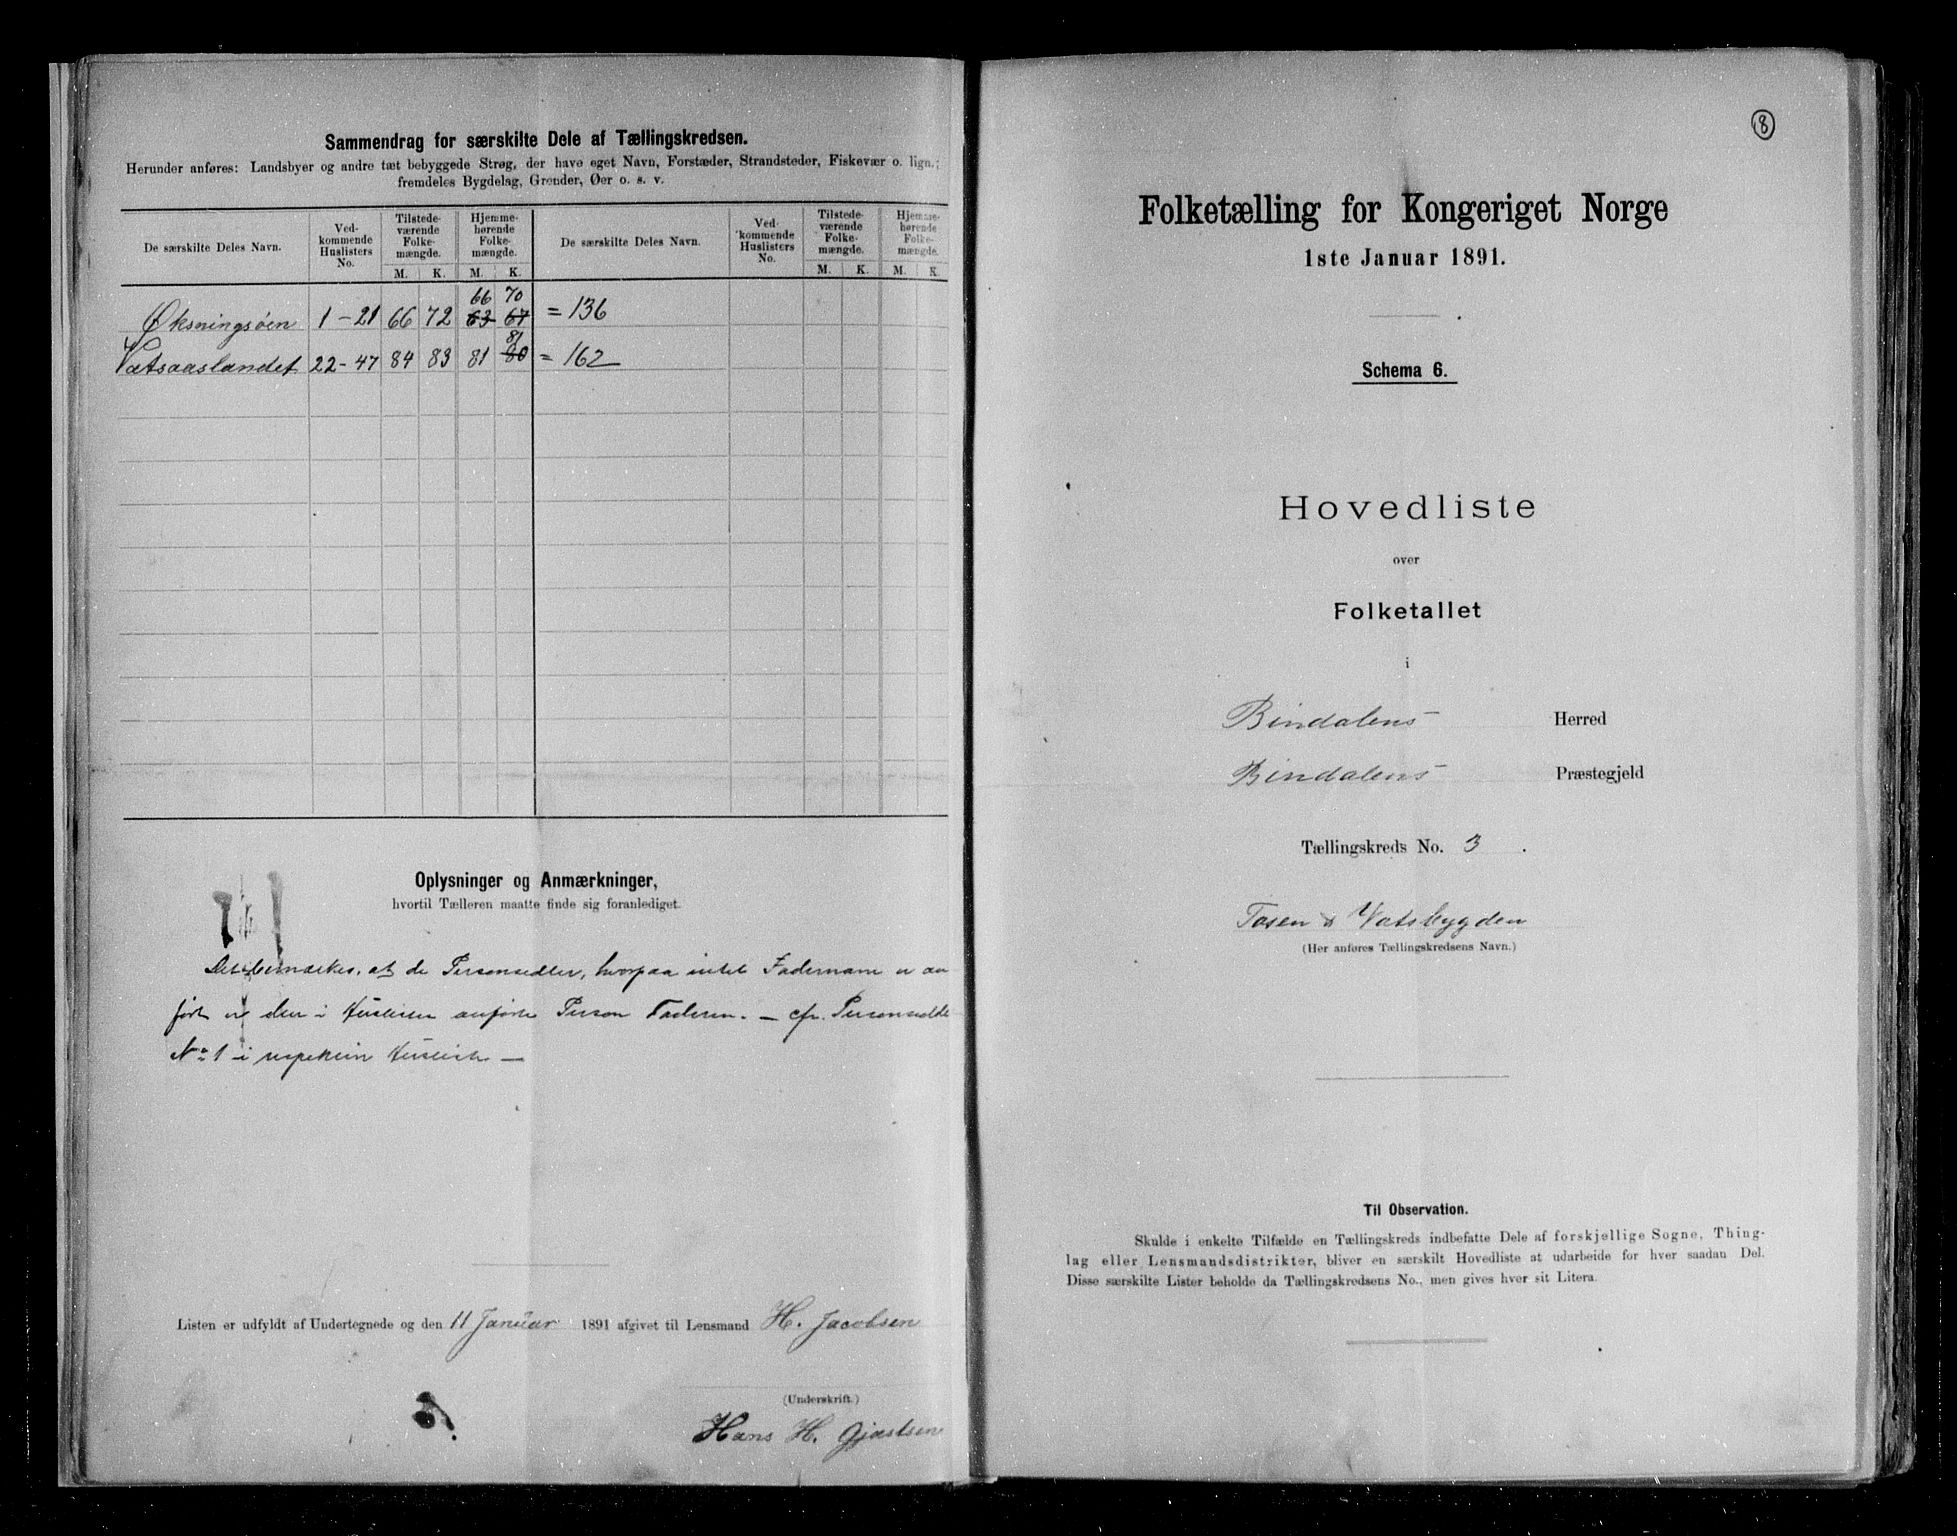 Sammendrag for særskilte Dele af Tællingskredsen.
Herunder anføres: Landsbyer og andre tæt bebyggede Strøg, der have eget Navn, Forstæder, Strandsteder, Fiskevær o. lign.;
fremdeles Bygdelag, Grender, Øer o. s. v.
De særskilte Deles Navn.
Ved-
kommende
Huslisters
No.
Tilstede-
værende
Folke-
mængde.
M. K.
Hjemme-
hørende
Folke-
mængde.
M. K.
De særskilte Deles Navn.
Ved-
kommende
Huslisters
No.
Tilstede-
værende
Folke-
mængde.
M. K.
Hjemme-
hørende
Folke-
mængde.
M. K.
66 70
Øksningsøen 1-21 66 72 63 67 = 136
81
Vatsaaslandet 22-47 84 83 81 80 = 162
Oplysninger og Anmærkninger,
hvortil Tælleren maatte finde sig foranlediget.
Det bemærkes, at de Personsedler, hvorpaa intet Fadernavn er an
ført er den i Huslisten anførte Person Faderen. — cfr. Personseddel
No 1 i Husliste —
Listen er udfyldt af Undertegnede og den 11 Januar 1891 afgivet til Lensmand H. Jacobsen
(Underskrift.)
Hans H. Gjæstsen
8
Folketælling for Kongeriget Norge
1ste Januar 1891.
Schema 6.
Hovedliste
over
Folketallet
i
Bindalens Herred
Bindalens Præstegjeld
Tællingskreds No. 3.
Tosen & Vatsbygden
(Her anføres Tællingskredsens Navn.)
Til Observation.
Skulde i enkelte Tilfælde en Tællingskreds indbefatte Dele af forskjellige Sogne, Thing-
lag eller Lensmandsdistrikter, bliver en særskilt Hovedliste at udarbeide for hver saadan Del.
Disse særskilte Lister beholde da Tællingskredsens No., men gives hver sit Litera.